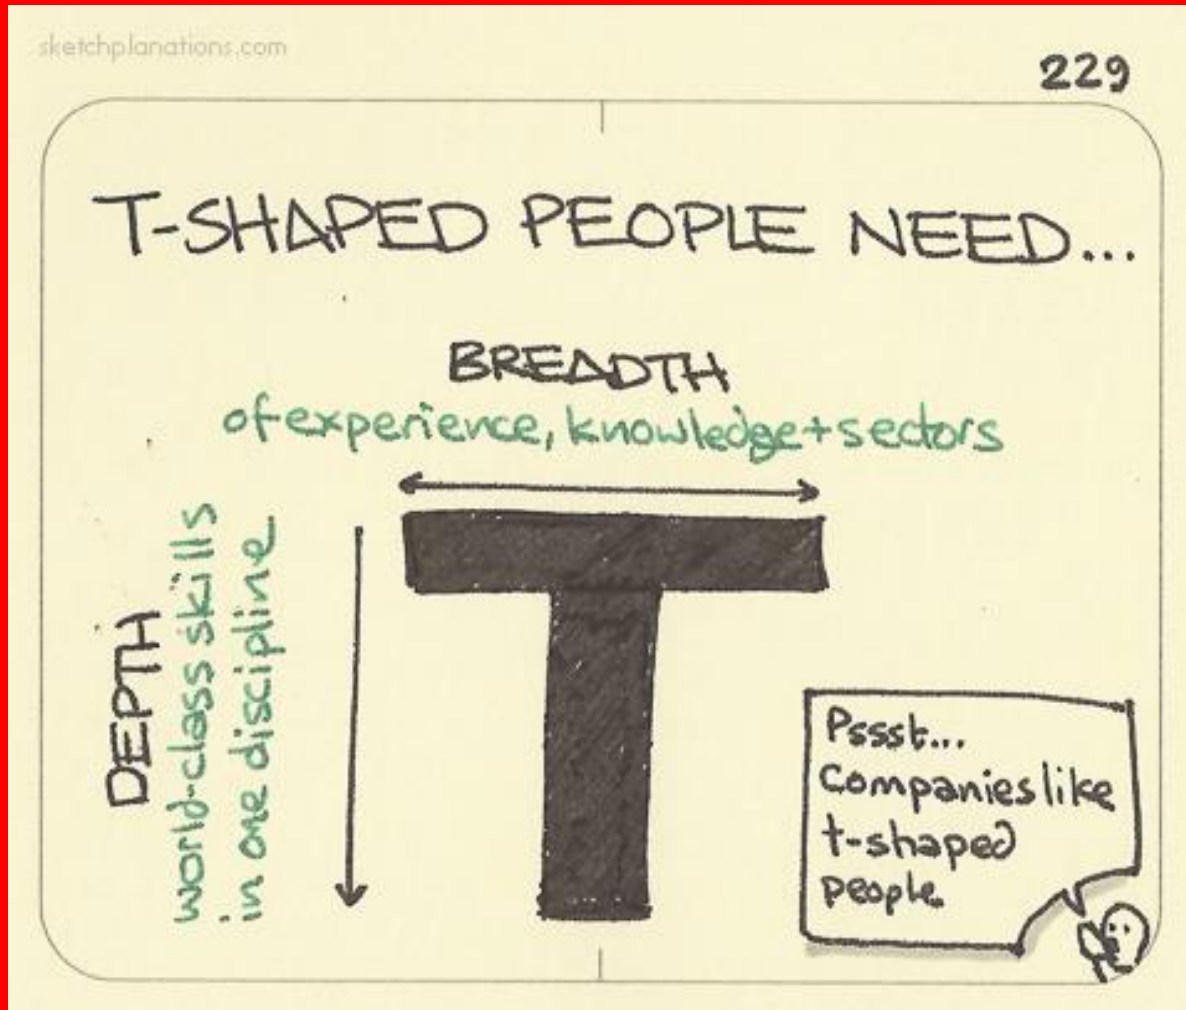 sketchplanations.com
229
T-SHAPED PEOPLE NEED...
BREADTH
of experience, knowledge + sectors
DEPTH
world-class skills
in one discipline
Pssst...
Companies like
t-shaped
people.